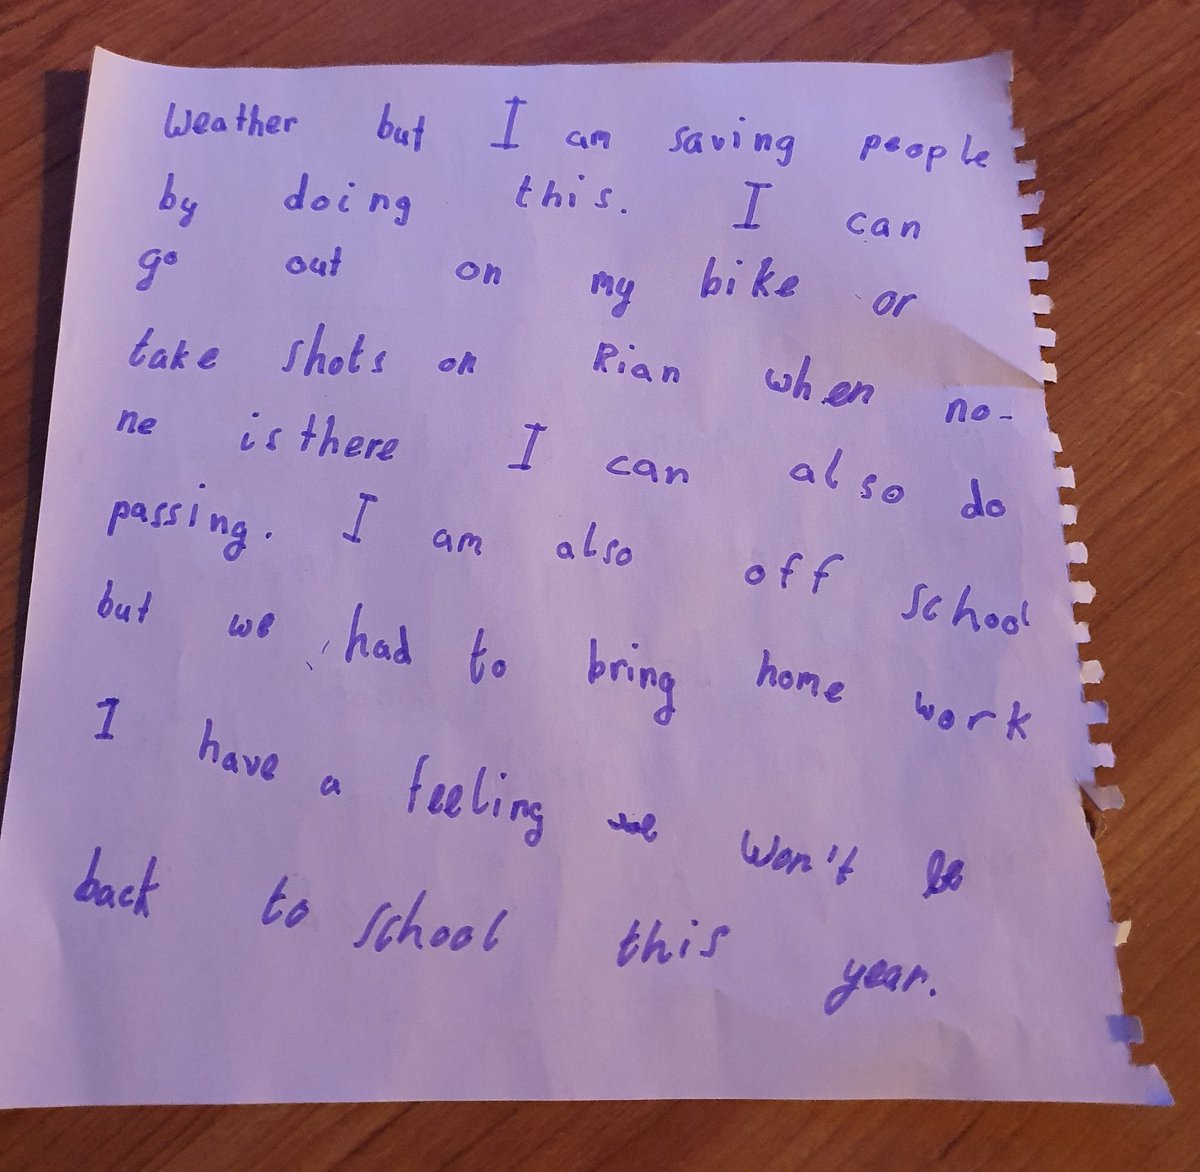 Weather but I am saving people
by doing this. I can
go out on my bike or
take shots on Rian when no-
ne is there I can also do
passing. I am also off school
but we had to bring home work
I have a feeling we won't be
back to school this year.